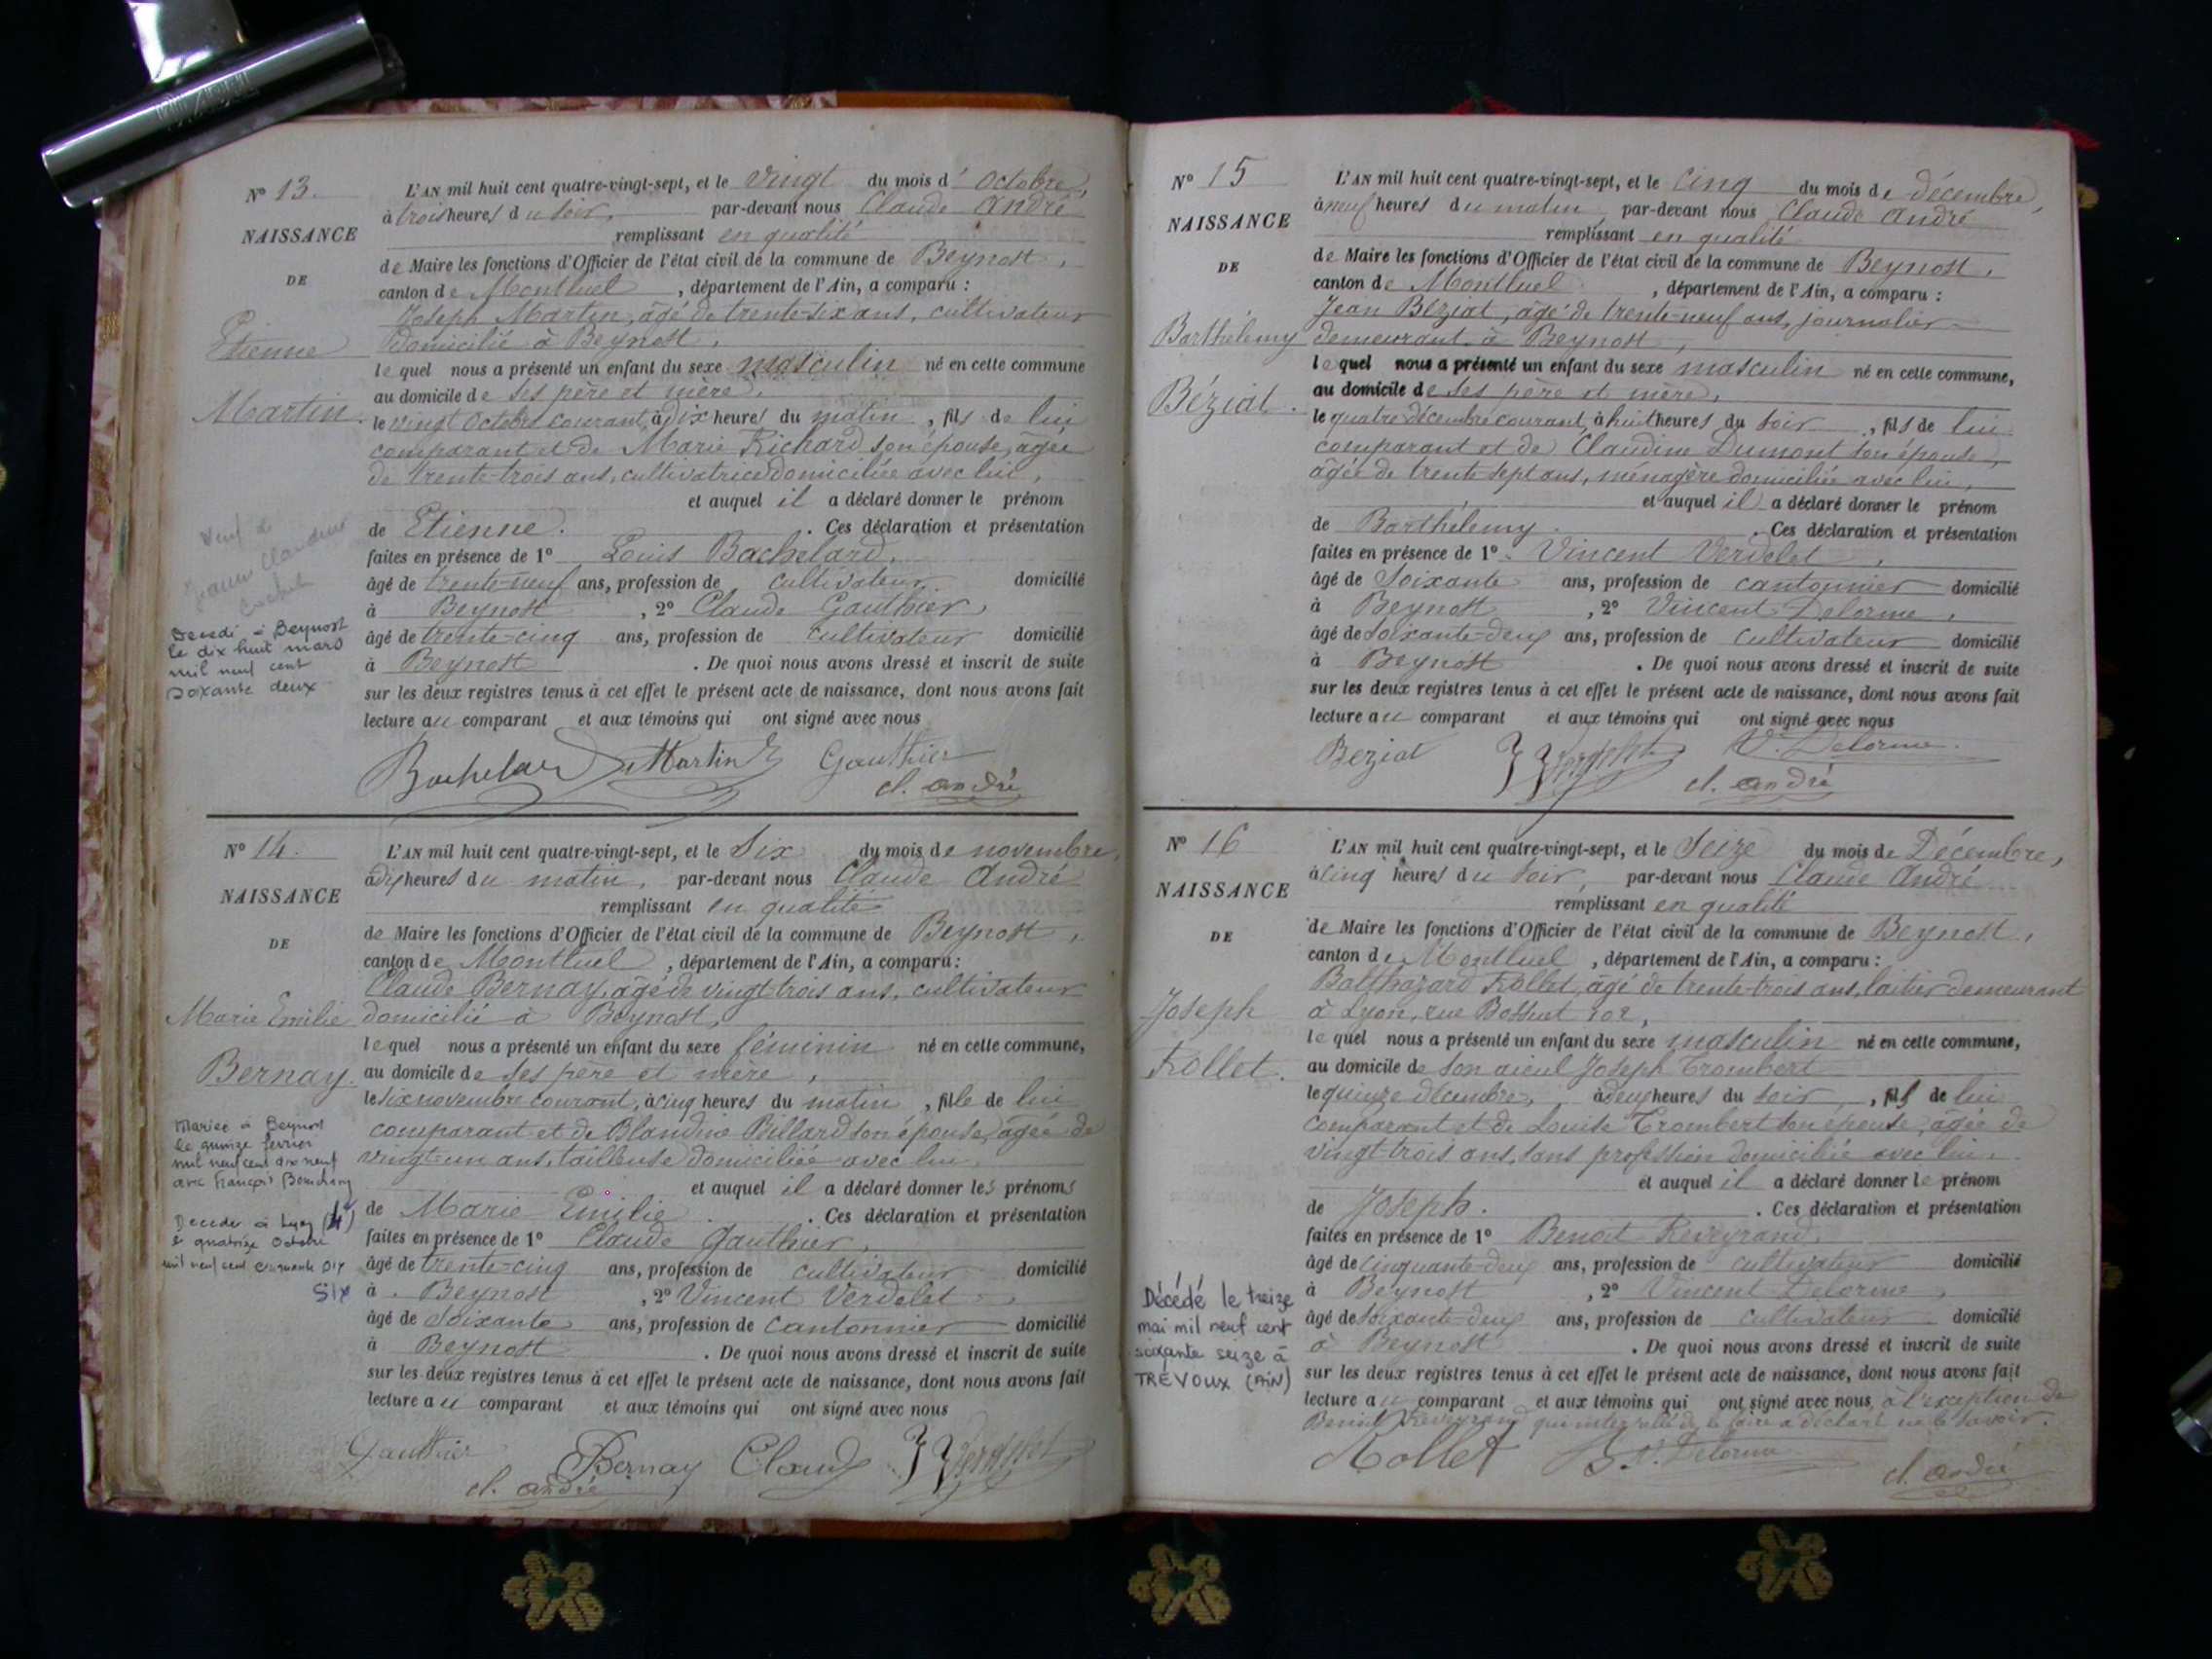 N° 13.
NAISSANCE
DE
Etienne
Martin.
L'AN mil huit cent quatre-vingt-sept, et le vingt du mois d'Octobre,
à trois heures du soir, par-devant nous Claude André
remplissant en qualité
de Maire les fonctions d'Officier de l'état civil de la commune de Beynost,
canton de Montluel, département de l'Ain, a comparu :
Joseph Martin, âgé de trente-six ans, cultivateur
domicilié à Beynost,
lequel nous a présenté un enfant du sexe masculin né en cette commune
au domicile de ses père et mère,
le vingt Octobre courant, à dix heures du matin, fils de lui
comparant et de Marie Richard son épouse, âgée
de trente-trois ans, cultivatrice domiciliée avec lui,
et auquel il a déclaré donner le prénom
de Etienne. Ces déclaration et présentation
faites en présence de 1° Louis Bachelard,
âgé de trente-neuf ans, profession de cultivateur domicilié
à Beynost, 2° Claude Gauthier,
âgé de trente-cinq ans, profession de cultivateur domicilié
à Beynost. De quoi nous avons dressé et inscrit de suite
sur les deux registres tenus à cet effet le présent acte de naissance, dont nous avons fait
lecture au comparant et aux témoins qui ont signé avec nous
Veuf de
Jeanne Claudine
Décédé à Beynost
le dix huit mars
mil neuf cent
soixante deux
Bachelard Martin Gauthier
cl. andré
N° 14.
NAISSANCE
DE
Marie Emilie
Bernay.
L'AN mil huit cent quatre-vingt-sept, et le Six du mois de novembre,
à dix heures du matin, par-devant nous Claude André
remplissant en qualité
de Maire les fonctions d'Officier de l'état civil de la commune de Beynost,
canton de Montluel, département de l'Ain, a comparu :
Claude Bernay, âgé de vingt trois ans, cultivateur
domicilié à Beynost,
lequel nous a présenté un enfant du sexe féminin né en cette commune,
au domicile de ses père et mère,
le six novembre courant, à cinq heures du matin, fille de lui
comparant et de Blandine Billard son épouse, âgée de
vingt-un ans, tailleuse domiciliée avec lui,
et auquel il a déclaré donner les prénoms
de Marie Emilie. Ces déclaration et présentation
faites en présence de 1° Claude Gauthier,
âgé de trente-cinq ans, profession de cultivateur domicilié
à Beynost, 2° Vincent Verdelet,
âgé de Soixante ans, profession de Cantonnier domicilié
à Beynost. De quoi nous avons dressé et inscrit de suite
sur les deux registres tenus à cet effet le présent acte de naissance, dont nous avons fait
lecture au comparant et aux témoins qui ont signé avec nous
Mariée à Beynost
le quinze février
mil neuf cent dix neuf
avec François
Décédée à Lyon (4)
le quatorze Octobre
mil neuf cent cinquante six
Six
Gauthier Bernay Claude Verdelet
cl. andré
N° 15
NAISSANCE
DE
Barthélemy
Béziat.
L'AN mil huit cent quatre-vingt-sept, et le cinq du mois de décembre,
à neuf heures du matin, par-devant nous Claude André
remplissant en qualité
de Maire les fonctions d'Officier de l'état civil de la commune de Beynost,
canton de Montluel, département de l'Ain, a comparu :
Jean Béziat, âgé de trente-neuf ans, journalier
demeurant à Beynost,
lequel nous a présenté un enfant du sexe masculin né en cette commune,
au domicile de ses père et mère,
le quatre décembre courant, à huit heures du soir, fils de lui
comparant et de Claudine Dumont son épouse,
âgée de trente sept ans, ménagère domiciliée avec lui,
et auquel il a déclaré donner le prénom
de Barthélemy. Ces déclaration et présentation
faites en présence de 1° Vincent Verdelet,
âgé de Soixante ans, profession de cantonnier domicilié
à Beynost, 2° Vincent Delorme,
âgé de soixante-deux ans, profession de cultivateur domicilié
à Beynost. De quoi nous avons dressé et inscrit de suite
sur les deux registres tenus à cet effet le présent acte de naissance, dont nous avons fait
lecture au comparant et aux témoins qui ont signé avec nous
Beziat Verdelet V. Delorme
cl. andré
N° 16
NAISSANCE
DE
Joseph
Rollet.
L'AN mil huit cent quatre-vingt-sept, et le Seize du mois de Décembre,
à cinq heures du soir, par-devant nous Claude André
remplissant en qualité
de Maire les fonctions d'Officier de l'état civil de la commune de Beynost,
canton de Montluel, département de l'Ain, a comparu :
Balthazard Rollet, âgé de trente-trois ans, laitier demeurant
à Lyon, rue Bossuet 102,
lequel nous a présenté un enfant du sexe masculin né en cette commune,
au domicile de son aïeul Joseph Trombert
le quinze décembre, à deux heures du soir, fils de lui
comparant et de Louise Trombert son épouse, âgée de
vingt-trois ans, sans profession domiciliée avec lui,
et auquel il a déclaré donner le prénom
de Joseph. Ces déclaration et présentation
faites en présence de 1° Benoit Reveyrand,
âgé de cinquante-deux ans, profession de cultivateur domicilié
à Beynost, 2° Vincent Delorme,
âgé de soixante-deux ans, profession de cultivateur domicilié
à Beynost. De quoi nous avons dressé et inscrit de suite
sur les deux registres tenus à cet effet le présent acte de naissance, dont nous avons fait
lecture au comparant et aux témoins qui ont signé avec nous à l'exception de
Benoit Reveyrand qui interpellé de le faire a déclaré ne le savoir.
Décédé le treize
mai mil neuf cent
soixante seize à
TREVOUX (AIN)
Rollet V. Delorme
cl. andré